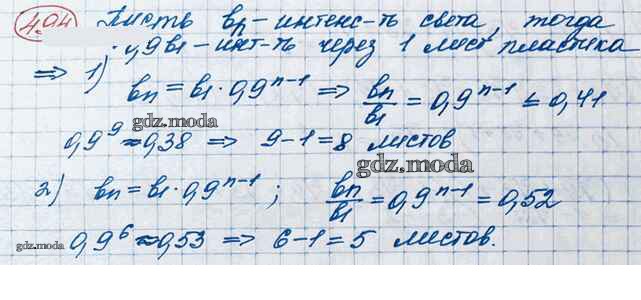 4.94 Пусть bn - интенс-ть света, тогда
0,9b1 - инт-ть через 1 лист пластика
=> 1) bn = b1 · 0,9^n-1 => bn/b1 = 0,9^n-1 ≤ 0,41
0,9^9 ≈ 0,38 => 9-1=8 листов
gdz.moda
gdz.moda
2) bn = b1 · 0,9^n-1 ; bn/b1 = 0,9^n-1 = 0,52
0,9^6 ≈ 0,53 => 6-1=5 листов.
gdz.moda